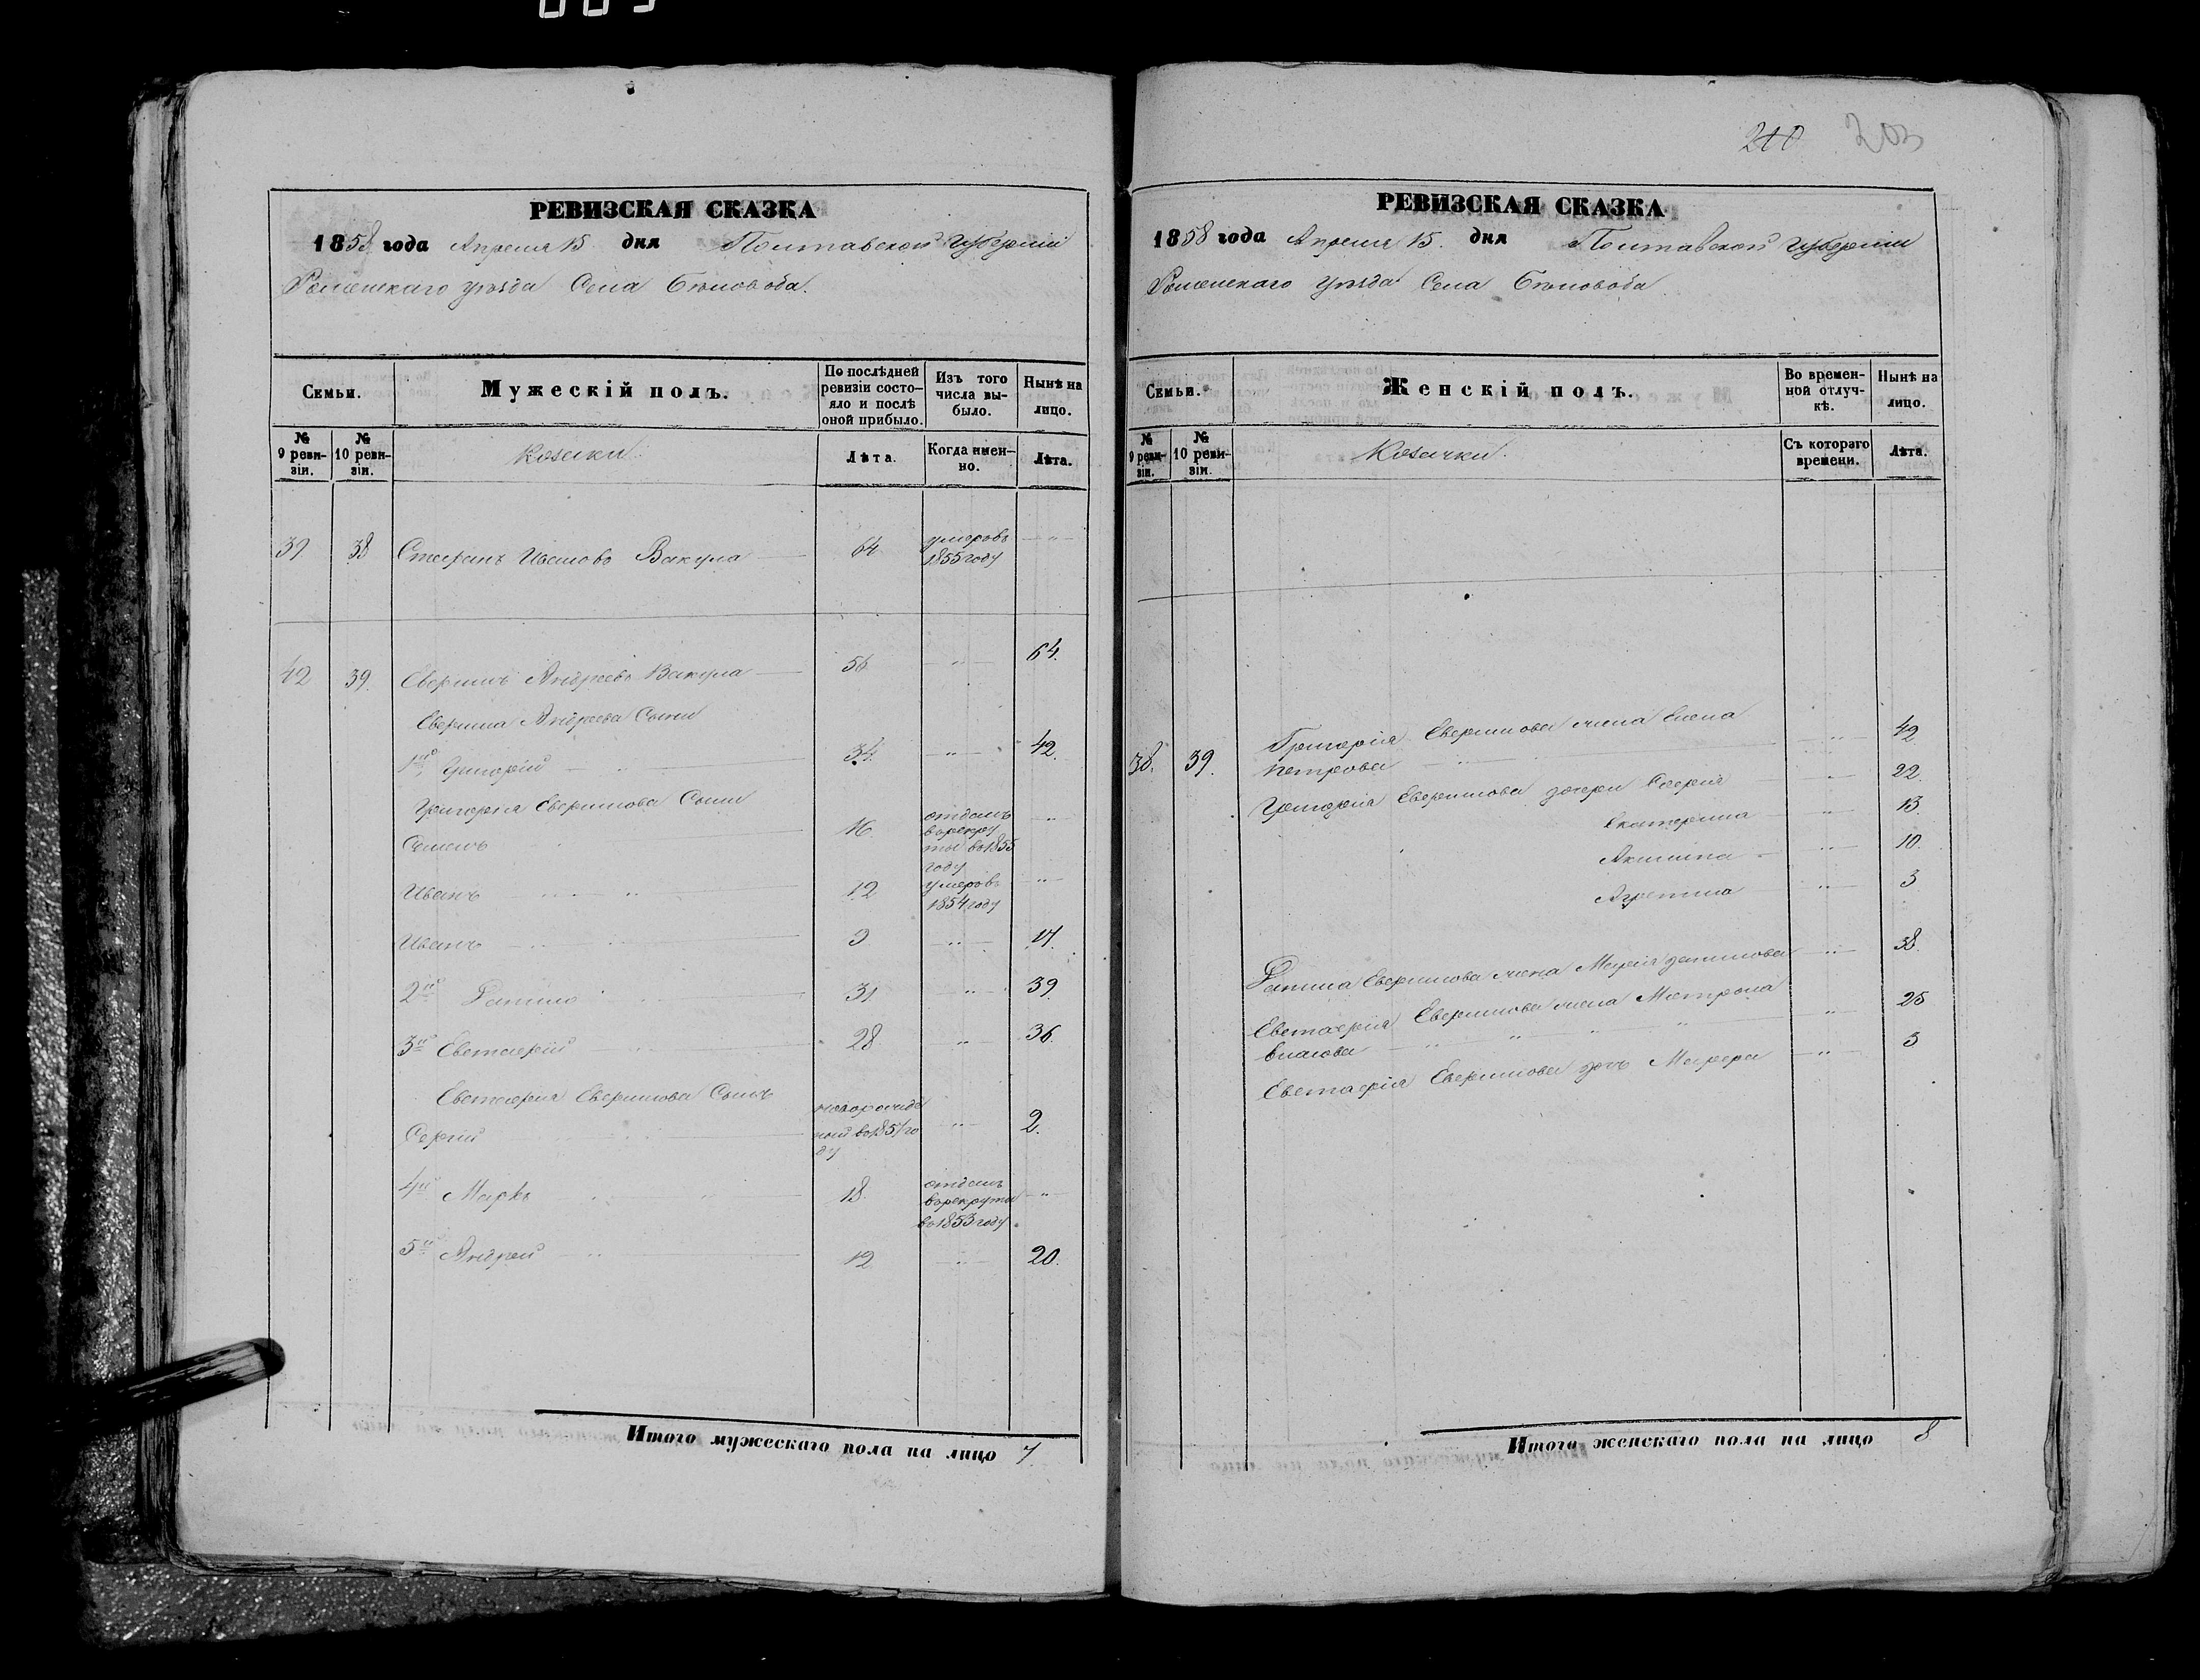 003
РЕВИЗСКАЯ СКАЗКА
1858 года Апреля 15 дня Полтавской Губерніи
Роменскаго уѣзда Села Бѣловода.
Семьи.
Мужескій полъ.
По послѣдней ревизіи состояло и послѣ оной прибыло.
Изъ того числа выбыло.
Нынѣ на лицо.
№ 9 ревизіи.
№ 10 ревизіи.
Козаки.
Лѣта.
Когда именно.
Лѣта.
39 38 Стефанъ Ивановъ Вакула 64 умеръ въ 1855 году "
42 39. Сверидъ Андреевъ Вакула 56 " 64.
Андреева Сыны
1й Григорій " 34. " 42.
Григорія Сыны
Семенъ 16. отданъ въ рекруты въ 1855 году "
Иванъ " " 12 умеръ въ 1854 году "
Иванъ " 9 " 17.
2й Данило 31 " 39.
3й Евстафій " 28 " 36.
Евстафія Сынъ
Сергій новорожденный въ году " 2.
4й Марко " " 18. отданъ въ рекруты въ 1853 году "
5й Андрей " 12 " 20.
Итого мужескаго пола на лицо 7
210 203
РЕВИЗСКАЯ СКАЗКА
1858 года Апреля 15. дня Полтавской Губерніи
Роменскаго уѣзда Села Бѣловода
Семьи.
Женскій полъ.
Во временной отлучкѣ.
Нынѣ на лицо.
№ 9 ревизіи.
№ 10 ревизіи.
Козачки.
Съ котораго времени.
Лѣта.
Григорія жена Елена
38. 39. Петрова " " 42
Григорія дочери " 22.
Екатерина " 13.
Акилина " 10.
" 3
Данила жена Марія " 38.
Евстафія жена Матрона
Власова " " " " 25
Евстафія дочь " 3
Итого женскаго пола на лицо 8